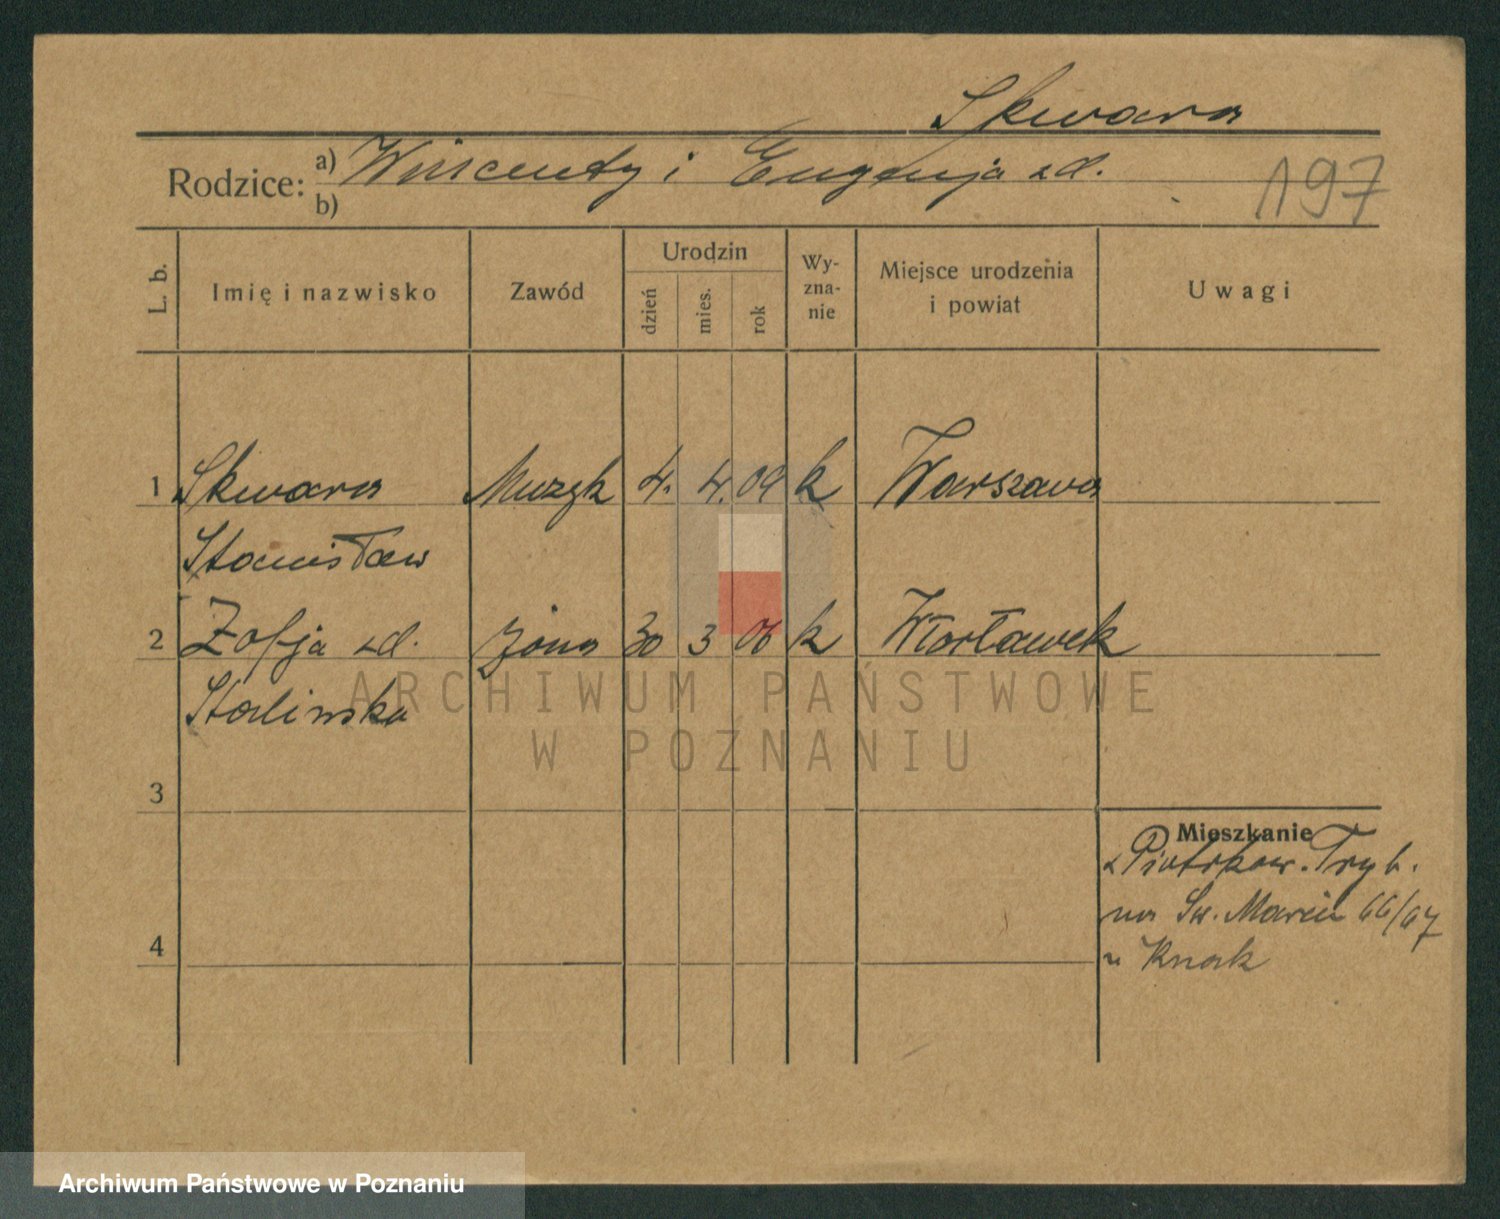 Skwara
Rodzice: a) Wincenty i Eugenja zd.
b)
197
L. b.
Imię i nazwisko
Zawód
Urodzin
dzień
mies.
rok
Wy-
zna-
nie
Miejsce urodzenia
i powiat
Uwagi
1 Skwara Muzyk 4. 4. 09 k Warszawa
Stanisław
2 Zofja zd. żona 30 3 06 k
Stalinska
3
Mieszkanie
z Piotrkow. Tryb.
na Św. Marcin 66/67
u Knak
4
ARCHIWUM PAŃSTWOWE
W POZNANIU
Archiwum Państwowe w Poznaniu